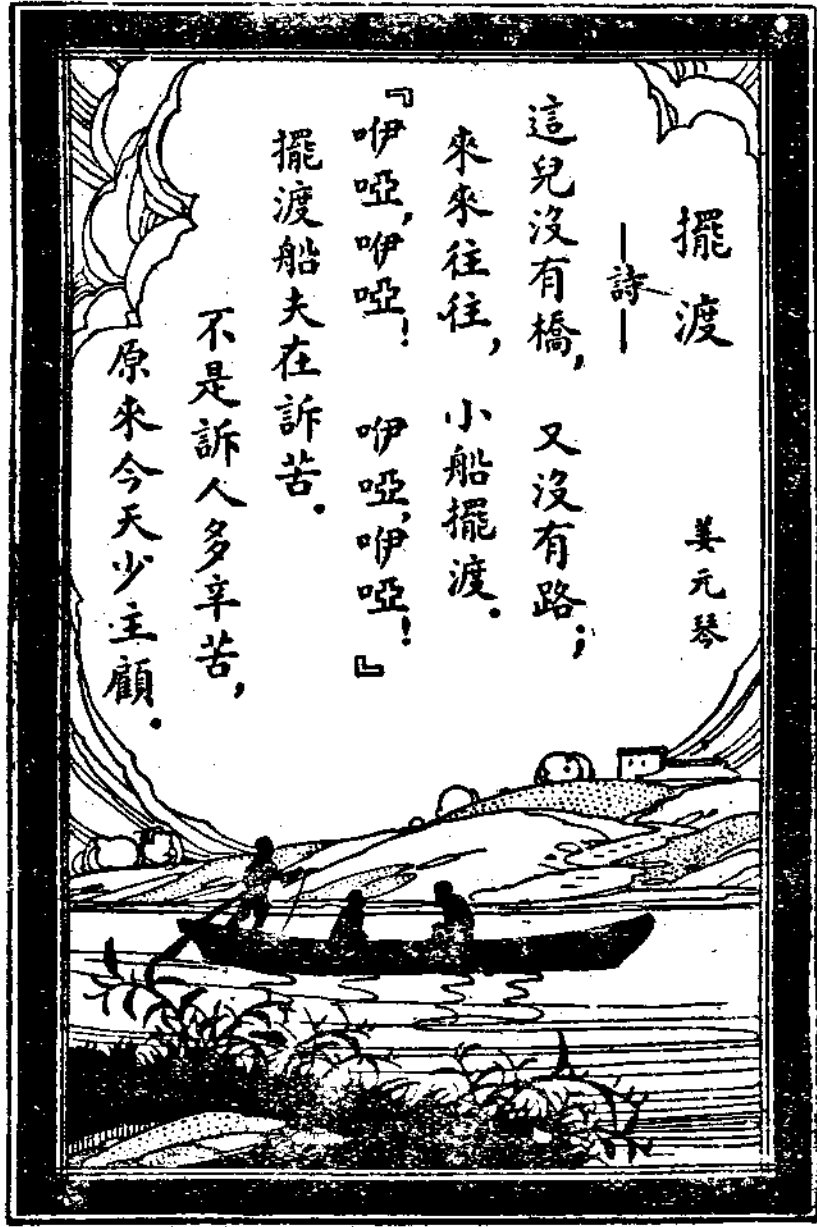 擺渡
姜元琴
—詩—
這兒沒有橋，又沒有路；
來來往往，小船擺渡．
『咿啞，咿啞！咿啞，咿啞！』
擺渡船夫在訴苦．
不是訴人多辛苦，
原來今天少主顧．